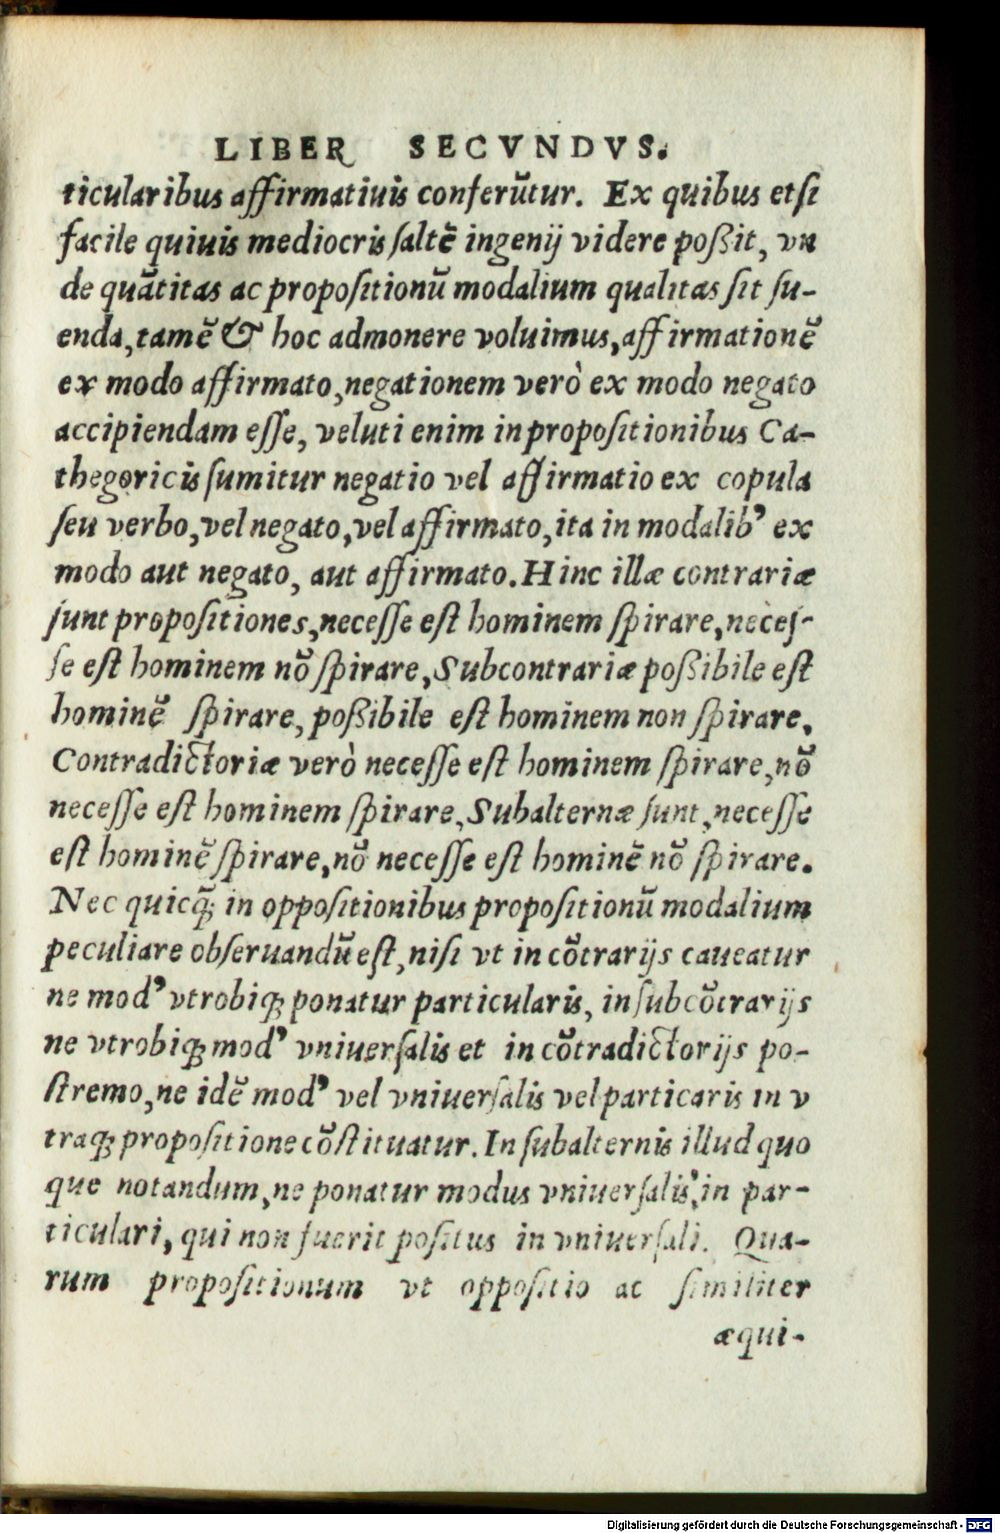 LIBER SECVNDVS.
ticularibus affirmatiuis conferūtur. Ex quibus etſi
facile quiuis mediocris ſaltē ingenij videre poßit, vn
de quātitas ac propoſitionū modalium qualitas ſit ſu-
enda, tamē & hoc admonere voluimus, affirmationē
ex modo affirmato, negationem verò ex modo negato
accipiendam eſſe, veluti enim in propoſitionibus Ca-
thegoricis ſumitur negatio vel affirmatio ex copula
ſeu verbo, vel negato, vel affirmato, ita in modalib⁹ ex
modo aut negato, aut affirmato. Hinc illæ contrariæ
ſunt propoſitiones, neceſſe eſt hominem ſpirare, neceſ-
ſe eſt hominem nō ſpirare, Subcontrariæ poßibile eſt
hominē ſpirare, poßibile eſt hominem non ſpirare,
Contradictoriæ verò neceſſe eſt hominem ſpirare, nō
neceſſe eſt hominem ſpirare, Subalternæ ſunt, neceſſe
eſt hominē ſpirare, nō neceſſe eſt hominē nō ſpirare.
Nec quicq̃; in oppoſitionibus propoſitionū modalium
peculiare obſeruandū eſt, niſi vt in cōtrarijs caueatur
ne mod⁹ vtrobiq; ponatur particularis, in ſubcōtrarijs
ne vtrobiq; mod⁹ vniuerſalis et in cōtradictorijs po-
ſtremo, ne idē mod⁹ vel vniuerſalis vel particaris in v
traq; propoſitione cōſtituatur. In ſubalternis illud quo
que notandum, ne ponatur modus vniuerſalis, in par-
ticulari, qui non fuerit poſitus in vniuerſali. Qua-
rum propoſitionum vt oppoſitio ac ſimiliter
æqui-
Digitalisierung gefördert durch die Deutsche Forschungsgemeinschaft - DFG